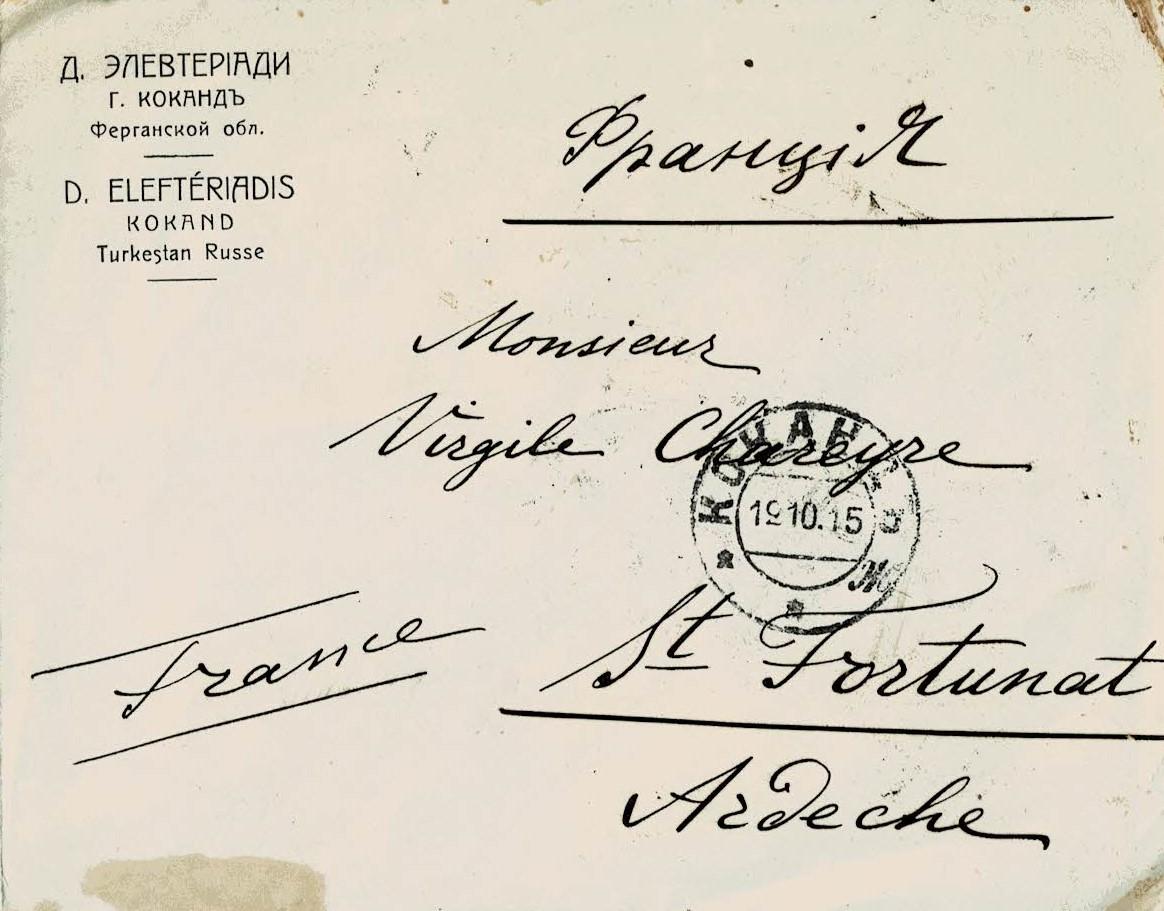 Д. ЭЛЕВТЕРІАДИ
Г. КОКАНДЪ
Ферганской обл.
D. ELEFTÉRIADIS
KOKAND
Turkestan Russe
Франція
Monsieur
Virgile Chareyre
КОКАН
19.10.15
France
St Fortunat
Ardeche